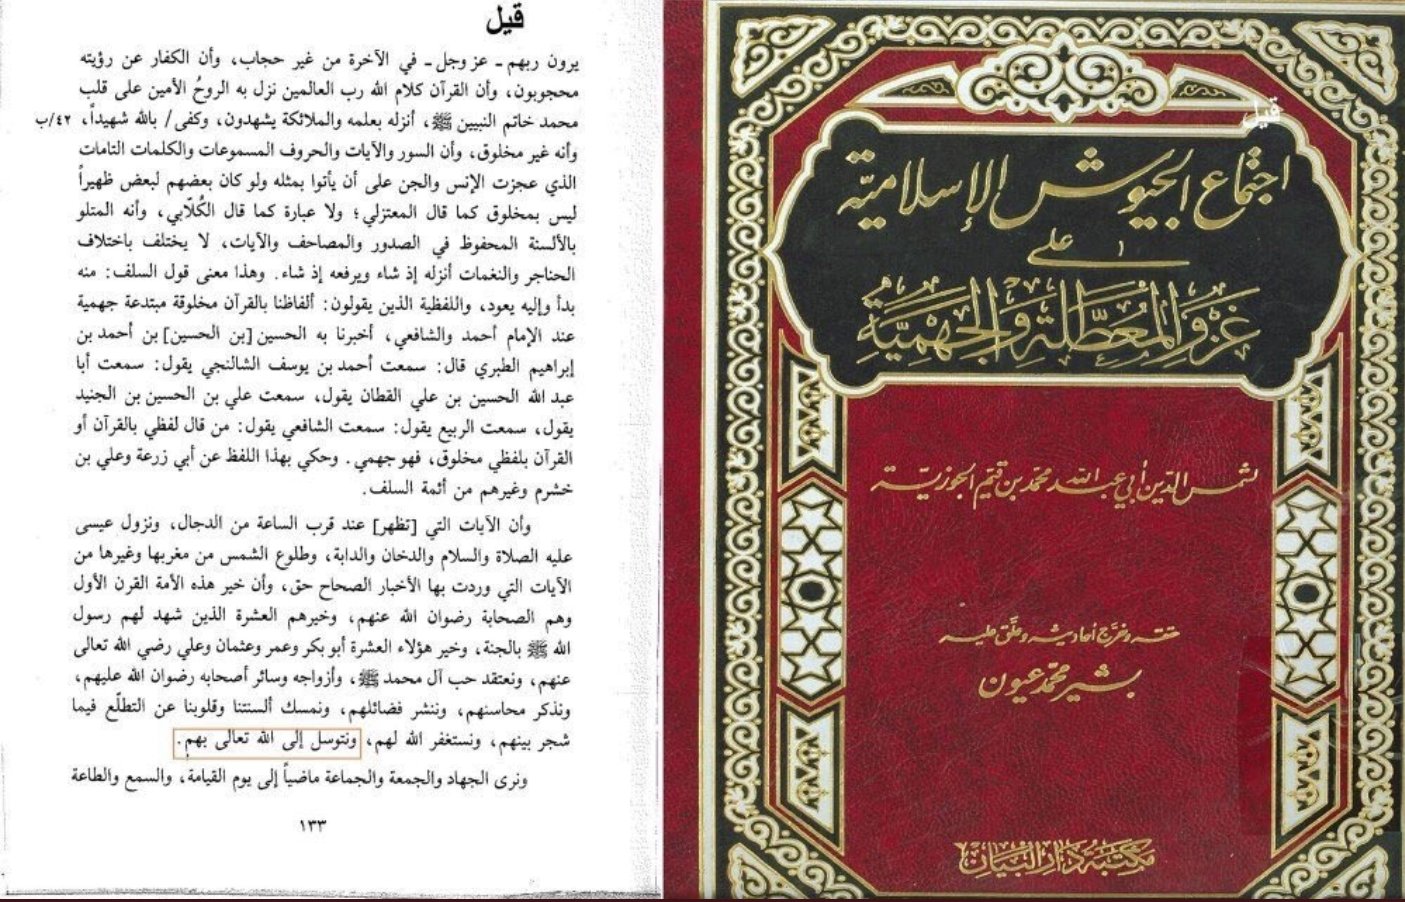 قيل
يرون ربهم ـ عز وجل ـ في الآخرة من غير حجاب، وأن الكفار عن رؤيته
محجوبون، وأن القرآن كلام الله رب العالمين نزل به الروحُ الأمين على قلب
محمد خاتم النبيين ﷺ، أنزله بعلمه والملائكة يشهدون، وكفى/ بالله شهيداً، ٤٢/ب
وأنه غير مخلوق، وأن السور والآيات والحروف المسموعات والكلمات التامات
الذي عجزت الإنس والجن على أن يأتوا بمثله ولو كان بعضهم لبعض ظهيراً
ليس بمخلوق كما قال المعتزلي؛ ولا عبارة كما قال الكُلّابي، وأنه المتلو
بالألسنة المحفوظ في الصدور والمصاحف والآيات، لا يختلف باختلاف
الحناجر والنغمات أنزله إذ شاء ويرفعه إذ شاء. وهذا معنى قول السلف: منه
بدأ وإليه يعود، واللفظية الذين يقولون: ألفاظنا بالقرآن مخلوقة مبتدعة جهمية
عند الإمام أحمد والشافعي، أخبرنا به الحسين [بن الحسين] بن أحمد بن
إبراهيم الطبري قال: سمعت أحمد بن يوسف الشالنجي يقول: سمعت أبا
عبد الله الحسين بن علي القطان يقول، سمعت علي بن الحسين بن الجنيد
يقول، سمعت الربيع يقول: سمعت الشافعي يقول: من قال لفظي بالقرآن أو
القرآن بلفظي مخلوق، فهو جهمي. وحكي بهذا اللفظ عن أبي زرعة وعلي بن
خشرم وغيرهم من أئمة السلف.
وأن الآيات التي [تظهر] عند قرب الساعة من الدجال، ونزول عيسى
عليه الصلاة والسلام والدخان والدابة، وطلوع الشمس من مغربها وغيرها من
الآيات التي وردت بها الأخبار الصحاح حق، وأن خير هذه الأمة القرن الأول
وهم الصحابة رضوان الله عنهم، وخيرهم العشرة الذين شهد لهم رسول
الله ﷺ بالجنة، وخير هؤلاء العشرة أبو بكر وعمر وعثمان وعلي رضي الله تعالى
عنهم، ونعتقد حب آل محمد ﷺ، وأزواجه وسائر أصحابه رضوان الله عليهم،
ونذكر محاسنهم، وننشر فضائلهم، ونمسك ألسنتنا وقلوبنا عن التطلّع فيما
شجر بينهم، ونستغفر الله لهم، ونتوسل إلى الله تعالى بهم.
ونرى الجهاد والجمعة والجماعة ماضياً إلى يوم القيامة، والسمع والطاعة
١٣٣
قيل
اجتماع الجيوش الإسلامية
على
غزو المعطلة والجهمية
لشمس الدين أبي عبد الله محمد بن قيم الجوزية
حققه وخرّج أحاديثه وعلّق عليه
بشير محمد عيون
مكتبة دار البيان